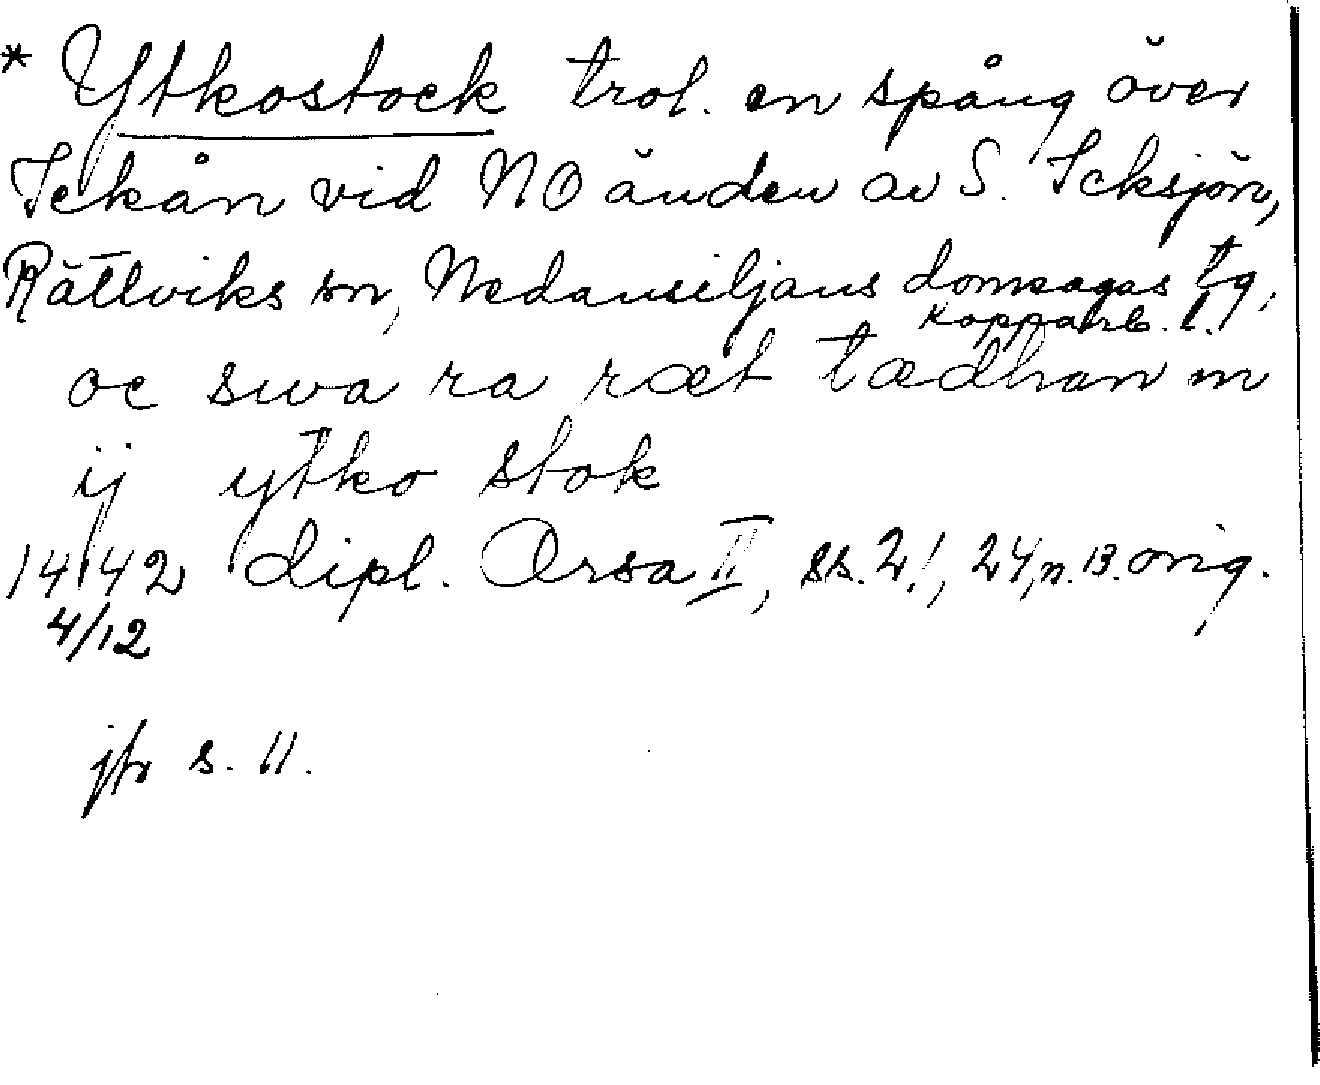 * Ytkostock trol. en spång över
Ickån vid NO änden av S. Icksjön,
Rättviks sn, Nedansiljans domsagas tg,
Kopparb. l.
oc swa ra ræt tædhan in
ij ytko stok
1442 dipl. Orsa II, ss. 2!, 24, n. 13. orig.
4/12
jfr s. 11.